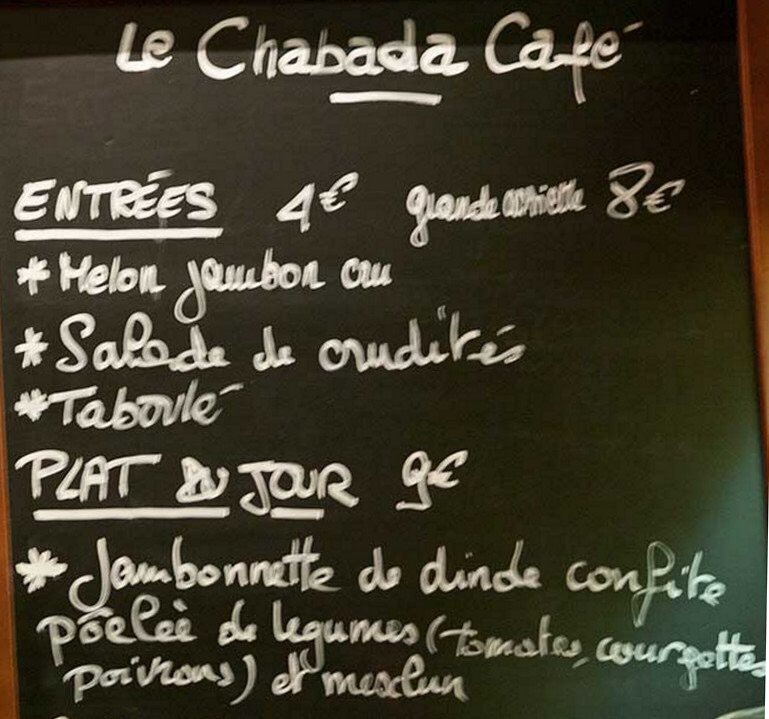 Le Chabada Café
ENTRÉES 4€ grande assiette 8€
* Melon jambon cru
* Salade de crudités
* Taboulé
PLAT DU JOUR 9€
* Jambonnette de dinde confite
pôelée de légumes (tomates, courgettes
poivrons) et mesclun